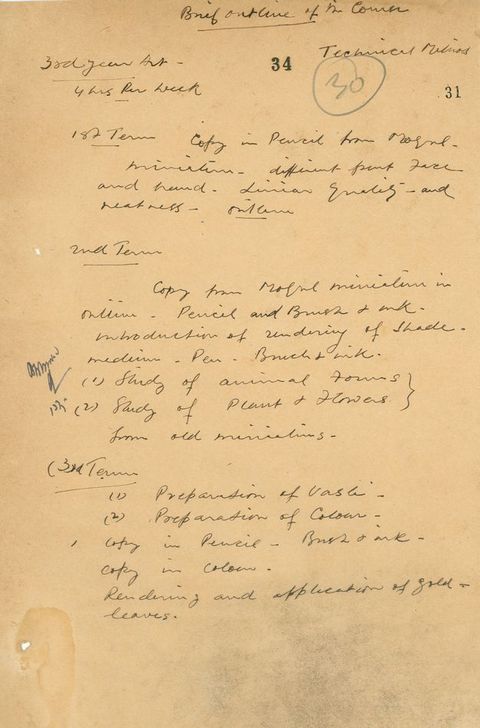 Brief outline of the Course
Technical Method
3rd year Art -
34
30
4 hrs Per week
31
1st Term Copy in Pencil from Mogul-
miniature - different front Face
and hand - Liniar Quality - and
neatness - outline
2nd Term
Copy from Mogul miniature in
outline - Pencil and Brush & ink -
introduction of rendering of Shade -
medium - Pen - Brush & ink.
(1) Study of animal Forms
(2) Study of Plant & Flowers
from old miniatures -
(3rd Term
(1) Preparation of Vasli -
(2) Preparation of Colour -
Copy in Pencil - Brush & ink -
copy in Colour -
Rendering and application of gold -
leaves.